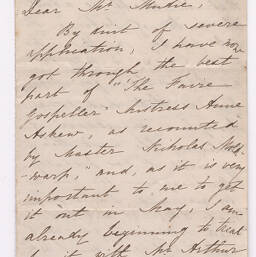 Dear Mr. Mudie,
By dint of severe
application, I have now
got through the best
part of "The Faire
Gospeller Mistress Anne
Askew, as recounted
by Master Nicholas Mold-
warp," and, as it is very
important to me to get
it out in May, I am
already beginning to treat
for it with Mr. Arthur